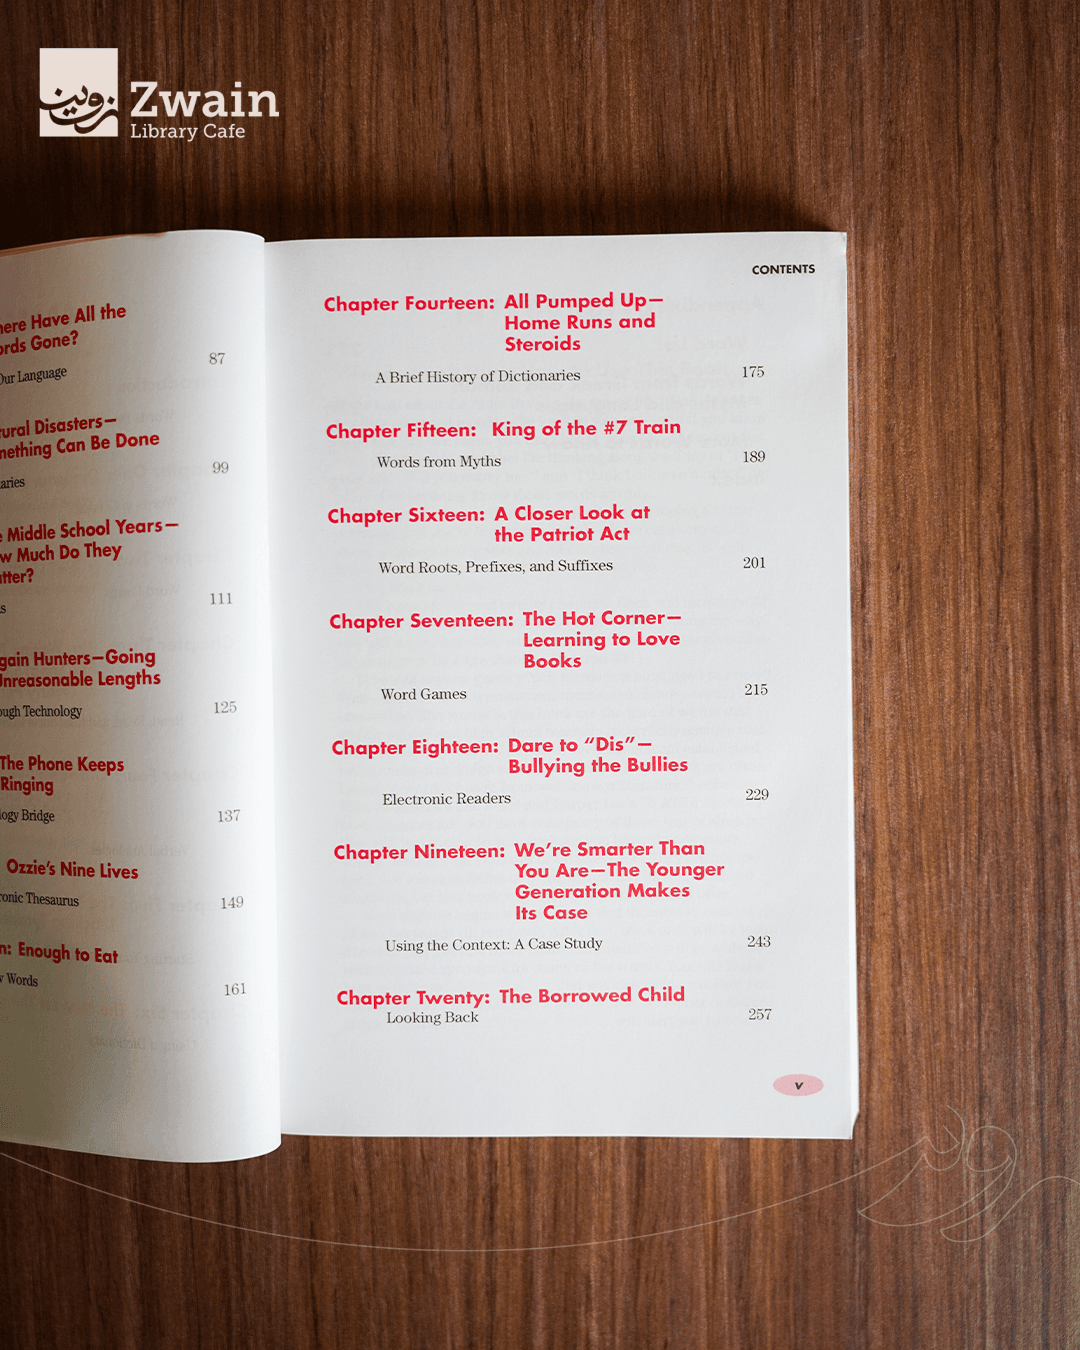 زوين
Zwain
Library Cafe
Have All the
Gone?
Our Language 87
Disasters—
Can Be Done
99
Middle School Years—
Much Do They
111
Hunters—Going
Unreasonable Lengths
Technology 125
The Phone Keeps
Ringing
Bridge 137
Ozzie's Nine Lives
Thesaurus 149
Enough to Eat
Words 161
CONTENTS
Chapter Fourteen: All Pumped Up—
Home Runs and
Steroids
A Brief History of Dictionaries 175
Chapter Fifteen: King of the #7 Train
Words from Myths 189
Chapter Sixteen: A Closer Look at
the Patriot Act
Word Roots, Prefixes, and Suffixes 201
Chapter Seventeen: The Hot Corner—
Learning to Love
Books
Word Games 215
Chapter Eighteen: Dare to “Dis”—
Bullying the Bullies
Electronic Readers 229
Chapter Nineteen: We're Smarter Than
You Are—The Younger
Generation Makes
Its Case
Using the Context: A Case Study 243
Chapter Twenty: The Borrowed Child
Looking Back 257
v